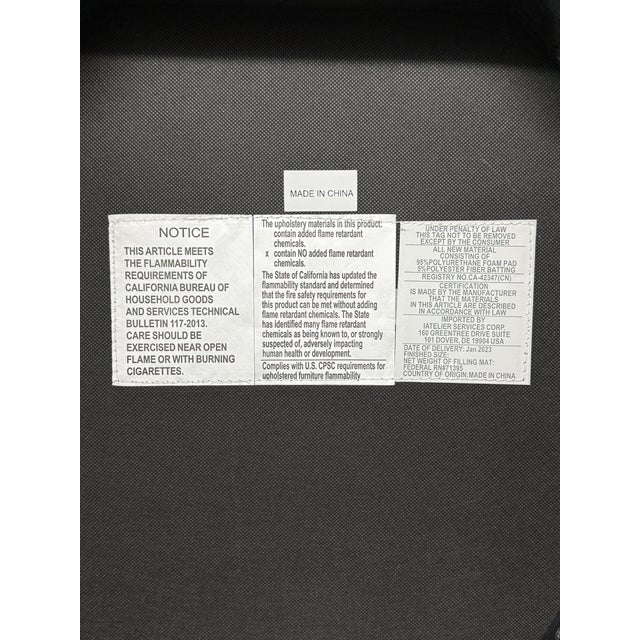 MADE IN CHINA
NOTICE
THIS ARTICLE MEETS
THE FLAMMABILITY
REQUIREMENTS OF
CALIFORNIA BUREAU OF
HOUSEHOLD GOODS
AND SERVICES TECHNICAL
BULLETIN 117-2013.
CARE SHOULD BE
EXERCISED NEAR OPEN
FLAME OR WITH BURNING
CIGARETTES.
The upholstery materials in this product:
contain added flame retardant
chemicals.
x contain NO added flame retardant
chemicals.
The State of California has updated the
flammability standard and determined
that the fire safety requirements for
this product can be met without adding
flame retardant chemicals. The State
has identified many flame retardant
chemicals as being known to, or strongly
suspected of, adversely impacting
human health or development.
Complies with U.S. CPSC requirements for
upholstered furniture flammability
UNDER PENALTY OF LAW
THIS TAG NOT TO BE REMOVED
EXCEPT BY THE CONSUMER
ALL NEW MATERIAL
CONSISTING OF
95%POLYURETHANE FOAM PAD
5%POLYESTER FIBER BATTING
REGISTRY NO.CA-42347(CN)
CERTIFICATION
IS MADE BY THE MANUFACTURER
THAT THE MATERIALS
IN THIS ARTICLE ARE DESCRIBED
IN ACCORDANCE WITH LAW
IMPORTED BY
IATELIER SERVICES CORP.
160 GREENTREE DRIVE SUITE
101 DOVER, DE 19904 USA
DATE OF DELIVERY: Jan 2023
FINISHED SIZE:
NET WEIGHT OF FILLING MAT:
FEDERAL RN#71395
COUNTRY OF ORIGIN:MADE IN CHINA